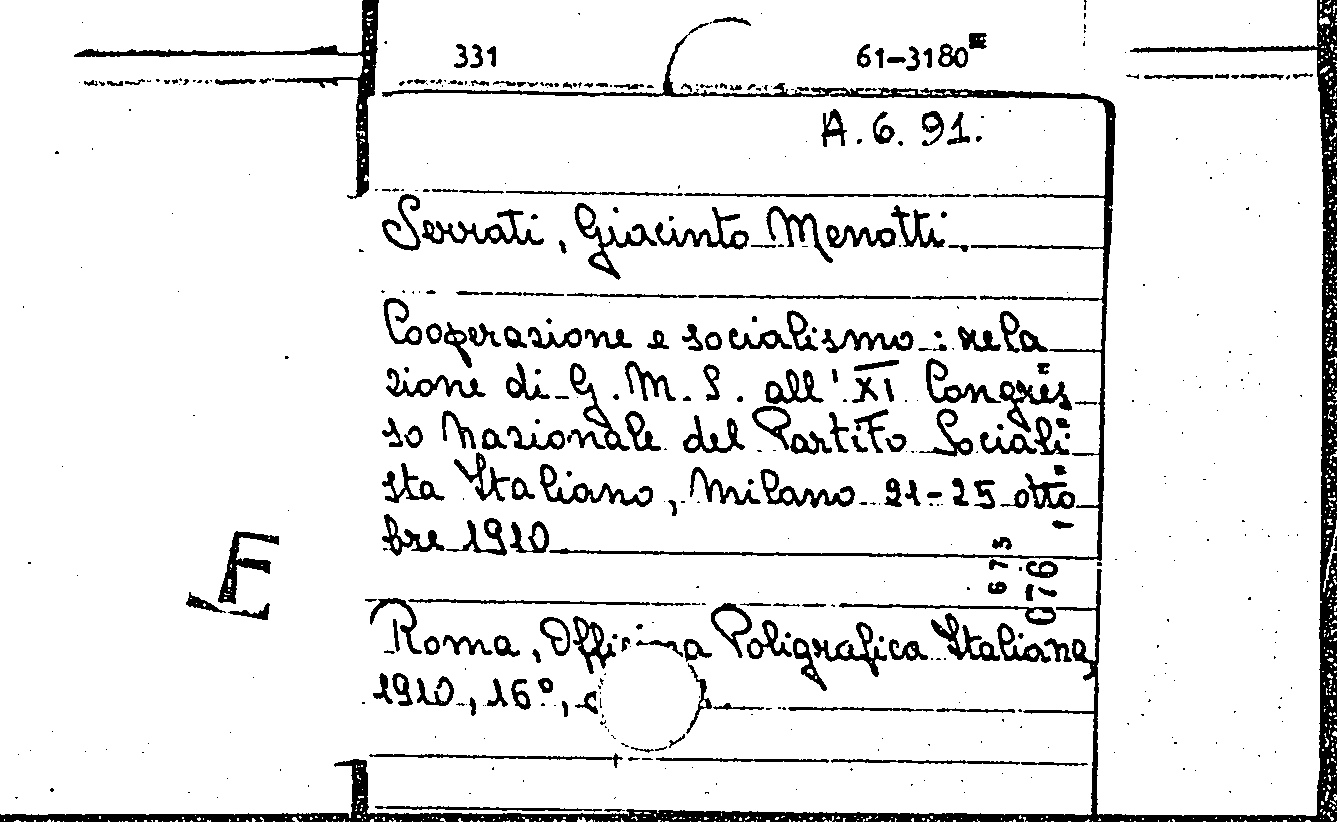 331 61-3180
A.6.91.
Serrati, Giacinto Menotti.
Cooperazione e socialismo : rela
zione di G. M. S. all'XI Congres
so Nazionale del Partito Sociali
sta Italiano, Milano 21-25 otto
bre 1910
673
076
Roma, Officina Poligrafica Italiana,
1910, 16°,
E